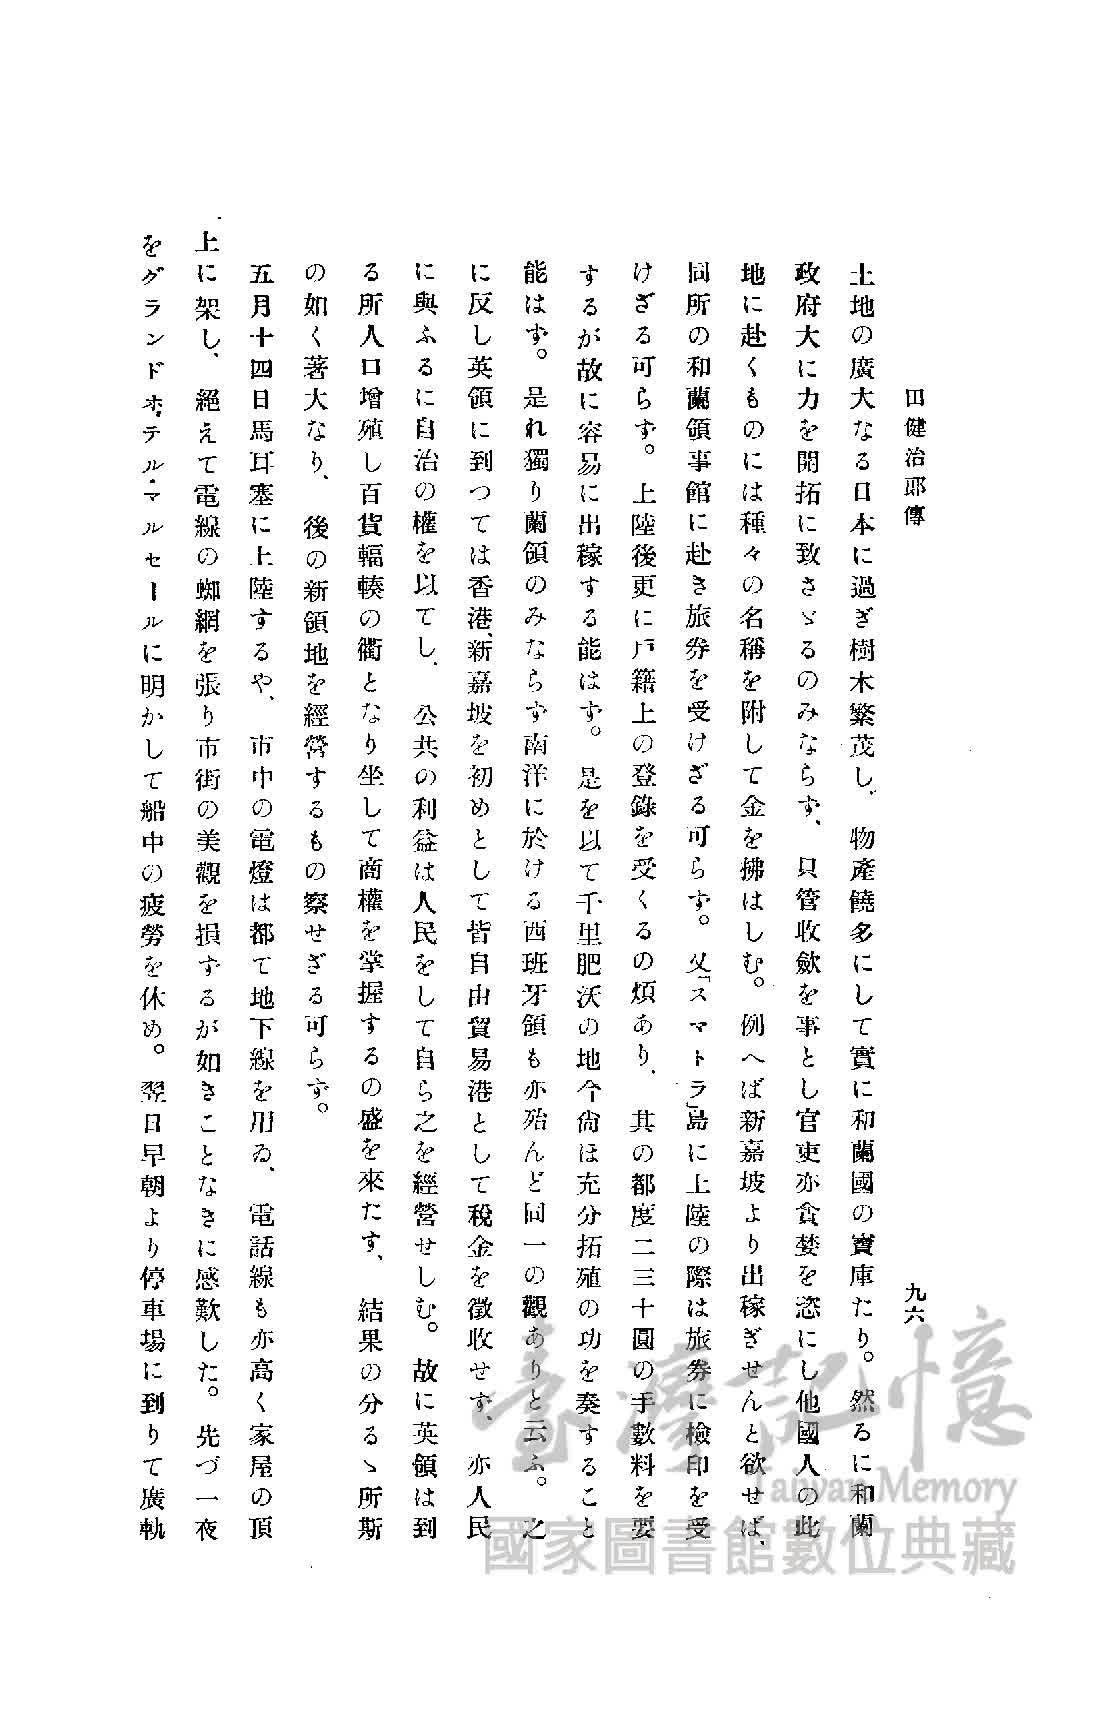 田健治郎傳
九六
土地の廣大なる日本に過ぎ樹木繁茂し、物產饒多にして實に和蘭國の寶庫たり。然るに和蘭
政府大に力を開拓に致さゞるのみならず、只管收斂を事とし官吏亦貪婪を恣にし他國人の此
地に赴くものには種々の名稱を附して金を拂はしむ。例へば新嘉坡より出稼ぎせんと欲せば、
同所の和蘭領事館に赴き旅券を受けざる可らず。又「スマトラ」島に上陸の際は旅券に檢印を受
けざる可らず。上陸後更に戶籍上の登錄を受くるの煩あり、其の都度二三十圓の手數料を要
するが故に容易に出稼する能はず。是を以て千里肥沃の地今尙ほ充分拓殖の功を奏すること
能はず。是れ獨り蘭領のみならず南洋に於ける西班牙領も亦殆んど同一の觀ありと云ふ。之
に反し英領に到つては香港、新嘉坡を初めとして皆自由貿易港として稅金を徵收せず、亦人民
に與ふるに自治の權を以てし、公共の利益は人民をして自ら之を經營せしむ。故に英領は到
る所人口增殖し百貨輻輳の衢となり坐して商權を掌握するの盛を來たす、結果の分るゝ所斯
の如く著大なり、後の新領地を經營するもの察せざる可らず。
五月十四日馬耳塞に上陸するや、市中の電燈は都て地下線を用ゐ、電話線も亦高く家屋の頂
上に架し、絕えて電線の蜘網を張り市街の美觀を損ずるが如きことなきに感歎した。先づ一夜
をグランドホテル・マルセールに明かして船中の疲勞を休め。翌日早朝より停車場に到りて廣軌
臺灣記憶
Taiwan Memory
國家圖書館數位典藏